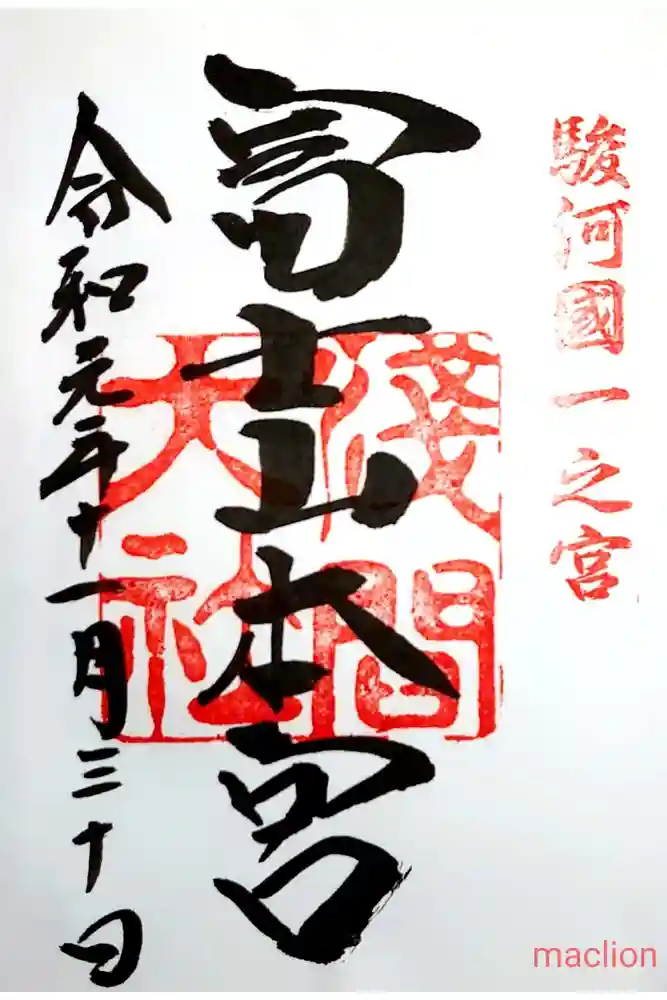 駿河國一之宮
冨士山本宮
淺間大社
令和元年十一月三十日
maclion